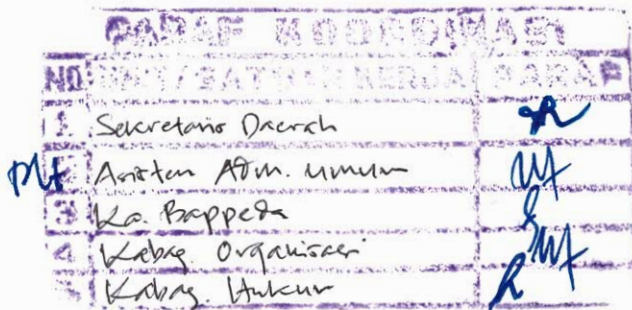 PARAF KOORDINASI
NO UNIT/SATUAN KERJA PARAF
1 Sekretaris Daerah
Plt 2 Asisten Adm. Umum
3 Ka. Bappeda
4 Kabag Organisasi
5 Kabag. Hukum